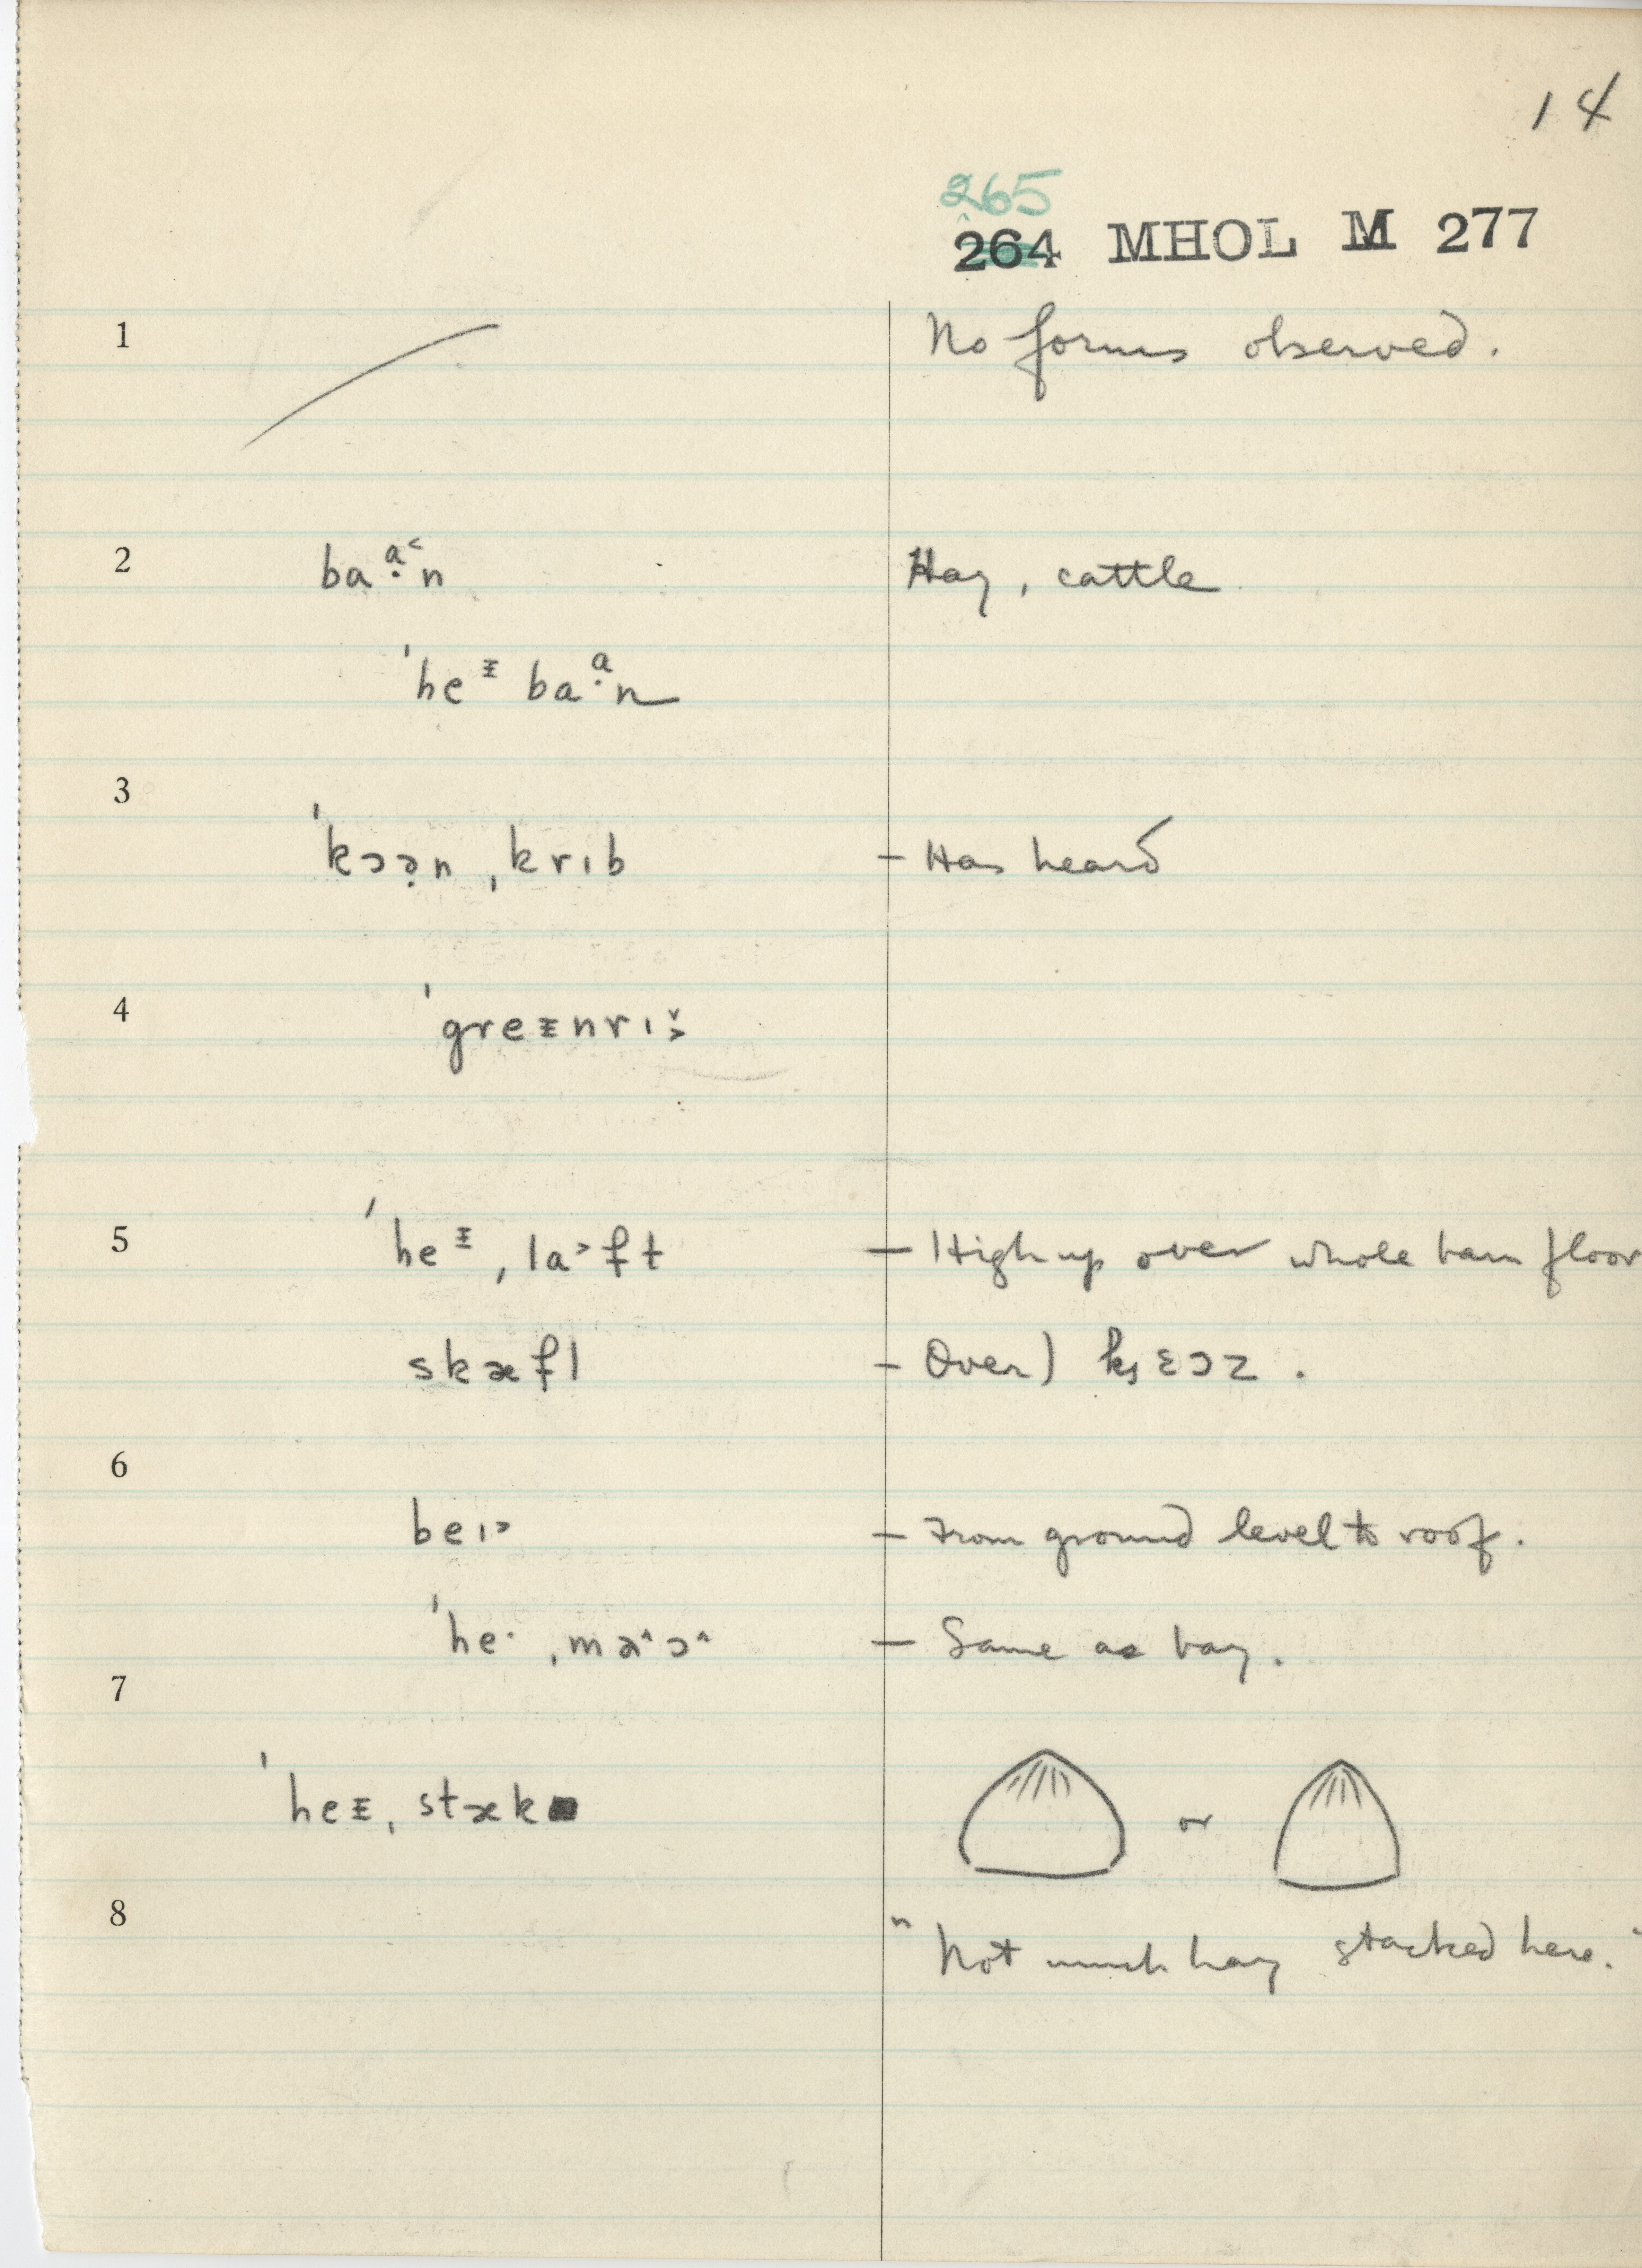 14
265
264 MHOL M 277
1 No forms observed.
2 baɑ̣˂n Hay, cattle
ˈheᵻ baɑ̣n
3
ˈkɔə̣n ˌkrɪb – Has heard
4 ˈgreᵻnrɪ
5 ˈheᵻ ˌla˃ft – High up over whole barn floor
skæfl – Over)
6
beɪ˃ – From ground level to roof.
ˈhe· ˌmə˄ɔ˄ – Same as bay.
7
ˈheᵻ ˌstæk or
8
"Not much hay stacked here."